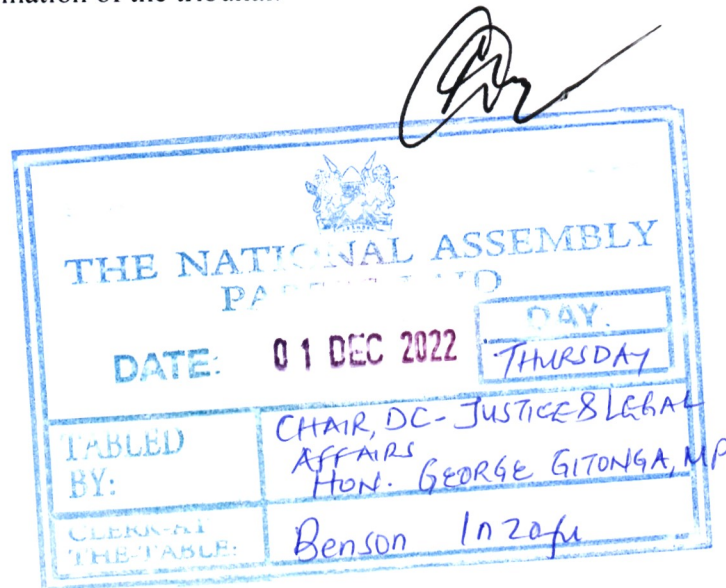 of the tribunal.
THE NATIONAL ASSEMBLY
PAPERS LAID
DATE: 01 DEC 2022
DAY.
THURSDAY
TABLED BY:
CHAIR, DC- JUSTICE & LEGAL
AFFAIRS
HON. GEORGE GITONGA, MP
CLERK-AT
THE-TABLE:
Benson Inzofu